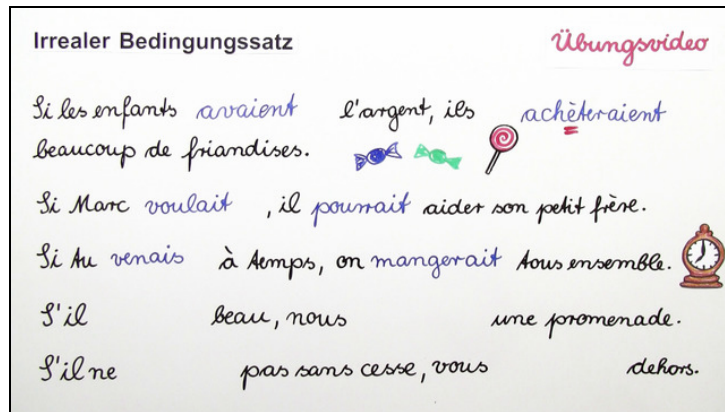 Irrealer Bedingungssatz
Übungsvideo
Si les enfants avaient l'argent, ils achèteraient
beaucoup de friandises.
Si Marc voulait , il pourrait aider son petit frère.
Si tu venais à temps, on mangerait tous ensemble.
S'il beau, nous une promenade.
S'il ne pas sans cesse, vous dehors.